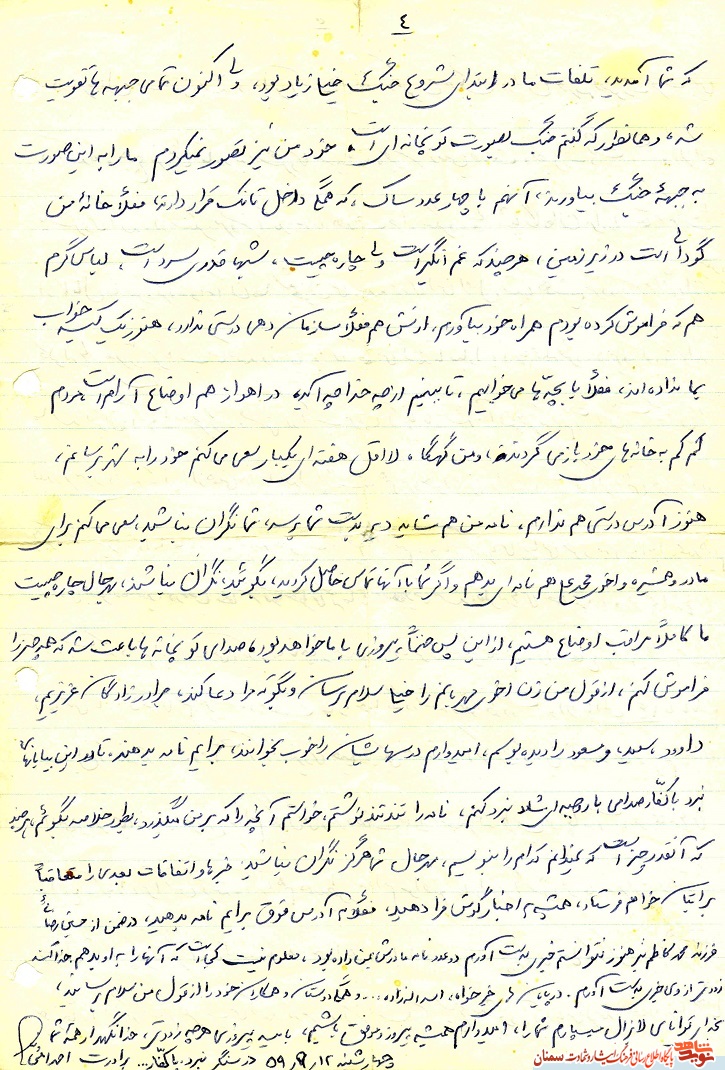 ٤
که شما آمدید، تلفات ما در ابتدای شروع جنگ خیلی زیاد بود، ولی اکنون تمامی جبهه ها تقویت
شده، و همانطور که گفتم جنگ بصورت توپخانه ای است. خود من نیز تصور نمیکردم ما را به این صورت
به جبههٔ جنگ بیاورند، آنهم با چهار عدد ساک، که همگی داخل تانک قرار دارند، فعلاً خانهٔ من
گودالی است در زیر زمین، هر چند که غم انگیز است ولی چاره چیست، شبها قدری سرد است، لباس گرم
هم که فراموش کرده بودم همراه خود بیاورم، ارتش هم فعلاً سازمان دهی درستی ندارد، هنوز یک کیسه خواب
بما نداده اند، فعلاً با بچه ها می خوابیم، تا ببینیم از چه خدا چه آید. در اهواز هم اوضاع آرام است مردم
کم کم به خانه های خود باز می گردند، و من گهگاه، لااقل هفته ای یکبار سعی می کنم خود را به شهر برسانم،
هنوز آدرس درستی هم ندارم، نامه من هم شاید دیر بدست شما برسد، شما نگران نباشید، سعی می کنم برای
مادر و همشیره و اخوی محمد علی هم نامه ای بدهم و اگر شما با آنها تماس حاصل کردید، بگوئید نگران نباشند، بهر حال چاره چیست
ما کاملاً مراقب اوضاع هستیم، از این پس حتماً پیروزی با ما خواهد بود، صدای توپخانه ها باعث شده که همه چیز را
فراموش کنم، از قول من زن اخوی مهربانم را خیلی سلام برسان و بگو که مرا دعا کند، برادرزادگان عزیزم،
داوود، سعید، و مسعود را دیده بوسم، امیدوارم درسهایشان را خوب بخوانند، برایم نامه بدهند، تا در این بیابانها
نبرد با کفار صدامی با روحیه ای شاد نبرد کنم، نامه را تند تند نوشتم، خواستم آنچه را که بر من میگذرد، بطور خلاصه بگویم، هر چند
که آنقدر چیز است که نمیدانم کدام را بنویسم، بهر حال شما هرگز نگران نباشید خبرها و اتفاقات بعدی را متعاقباً
برایتان خواهم فرستاد، همیشه به اخبار گوش فرا دهید، فعلاً به آدرس فوق برایم نامه بدهید، در ضمن از حسین رضائی
فرزند محمد کاظم نیز هنوز نتوانستم خبری بدست آورم دو عدد نامه مادرش بمن داده بود، معلوم نیست کجا است که آنها را به او بدهم خدا کند
زودتر از وی خبری بدست آورم. در پایان های خیر خواه، اسدالله زاده، ... و همگی دوستان و همکاران خود را از قول من سلام برسانید،
بخدای توانای لایزال میسپارم شما را، امیدوارم همیشه پیروز و موفق باشیم، بامید پیروزی هر چه زودتر، خدا نگهدار همهٔ شما
چهارشنبه ۱۲ / ۹ / ۵۹ در سنگر نبرد با کفار ... برادرت احد
نوید شاهد
پایگاه اطلاع رسانی فرهنگ ایثار و شهادت سمنان